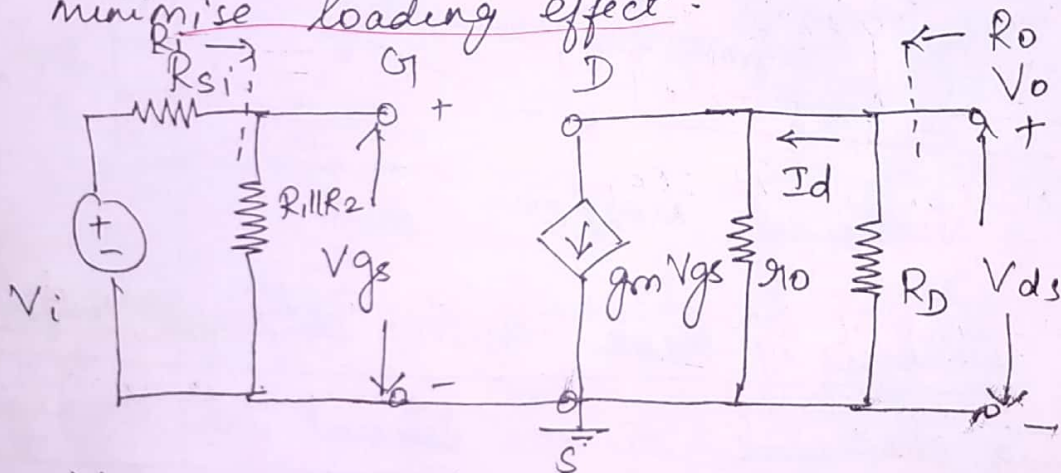 minimise loading effect.
Ri →
RSi
G
+
D
← Ro
Vo
+
Id
R1||R2
Vgs
gmVgs
ro
RD
Vds
+
-
Vi
-
S
-